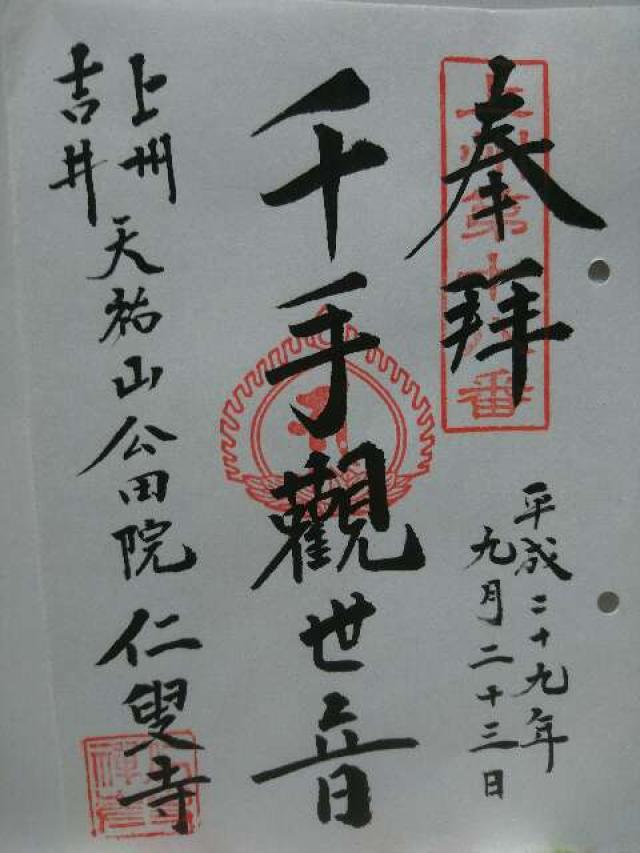 奉拜
平成二十九年
九月二十三日
千手觀世音
上州
吉井
天祐山公田院仁叟寺